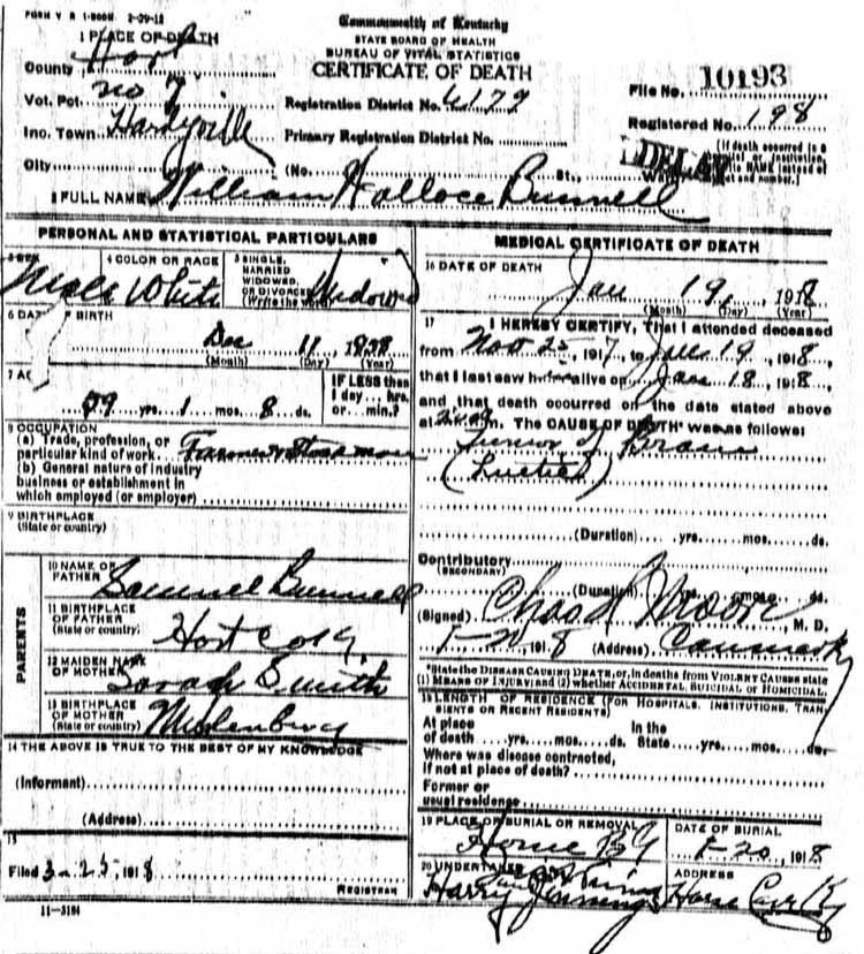 FORM V S 1-500M 2-09-12
Commonwealth of Kentucky
STATE BOARD OF HEALTH
BUREAU OF VITAL STATISTICS
CERTIFICATE OF DEATH
1 PLACE OF DEATH
County Hart
Vot. Pct. no 7
Inc. Town Hardyville
City
Registration District No. 4179
Primary Registration District No.
(No. St.,
File No. 10193
Registered No. 198
[If death occurred in a
DELAY
2 FULL NAME William Wallace Bunnell
PERSONAL AND STATISTICAL PARTICULARS
Male
4 COLOR OR RACE White
5 SINGLE, MARRIED WIDOWED, OR DIVORCED (Write the word)
6 DATE OF BIRTH
Dec 11, 1838
(Month) (Day) (Year)
7 AGE
79 yrs. 1 mos. 8 ds.
IF LESS than 1 day... hrs. or... min.?
8 OCCUPATION
(a) Trade, profession, or
particular kind of work Farmer
(b) General nature of industry
business or establishment in
which employed (or employer)
9 BIRTHPLACE
(State or country)
PARENTS
10 NAME OF FATHER Samuel Bunnell
11 BIRTHPLACE OF FATHER (State or country) Hart Co Ky
12 MAIDEN NAME OF MOTHER Sarah Smith
13 BIRTHPLACE OF MOTHER (State or country)
14 THE ABOVE IS TRUE TO THE BEST OF MY KNOWLEDGE
(Informant)
(Address)
15
Filed 3-25, 1918
REGISTRAR
11-3184
MEDICAL CERTIFICATE OF DEATH
16 DATE OF DEATH
Jan 19, 1918
(Month) (Day) (Year)
17 I HEREBY CERTIFY, That I attended deceased
from 25, 1917, to Jan 19, 1918,
that I last saw h alive on Jan 18, 1918,
and that death occurred on the date stated above
at m. The CAUSE OF DEATH* was as follows:
of
(Duration) yrs. mos. ds.
Contributory
(SECONDARY)
(Duration) yrs. mos. ds.
(Signed) Chas H Moore, M. D.
1-20, 1918 (Address) Canmer Ky
*State the DISEASE CAUSING DEATH, or, in deaths from VIOLENT CAUSES state
(1) MEANS OF INJURY; and (2) whether ACCIDENTAL, SUICIDAL or HOMICIDAL.
18 LENGTH OF RESIDENCE (FOR HOSPITALS, INSTITUTIONS, TRANSIENTS OR RECENT RESIDENTS)
At place of death yrs. mos. ds. In the State yrs. mos. ds.
Where was disease contracted,
If not at place of death?
Former or
usual residence
19 PLACE OF BURIAL OR REMOVAL
Home
DATE OF BURIAL
1-20, 1918
20 UNDERTAKER
Harry Jennings
ADDRESS
Horse Cave Ky